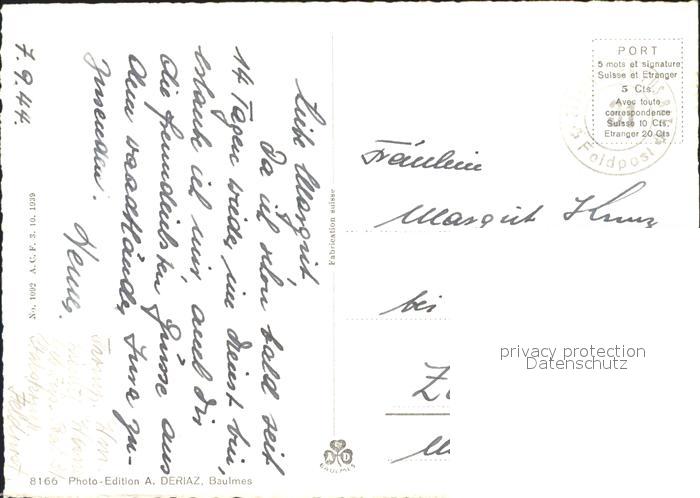 7.9.44.
Liebe Margrit,
Da ich schon bald seit
14 Tagen wieder im Dienst bin,
erlaube ich mir, auch dir
die freundlichsten Grüsse aus
dem waadtländer Jura zu-
zusenden.
Fräulein
Margrit Kunz
bei
PORT
5 mots et signature
Suisse et Etranger
5 Cts.
Avec toute
correspondence
Suisse 10 Cts.
Etranger 20 Cts
Feldpost
Fabrication suisse
No. 1092 A. C. F. 3. 10. 1939
8166 Photo-Edition A. DERIAZ, Baulmes
A D
BAULMES
privacy protection
Datenschutz